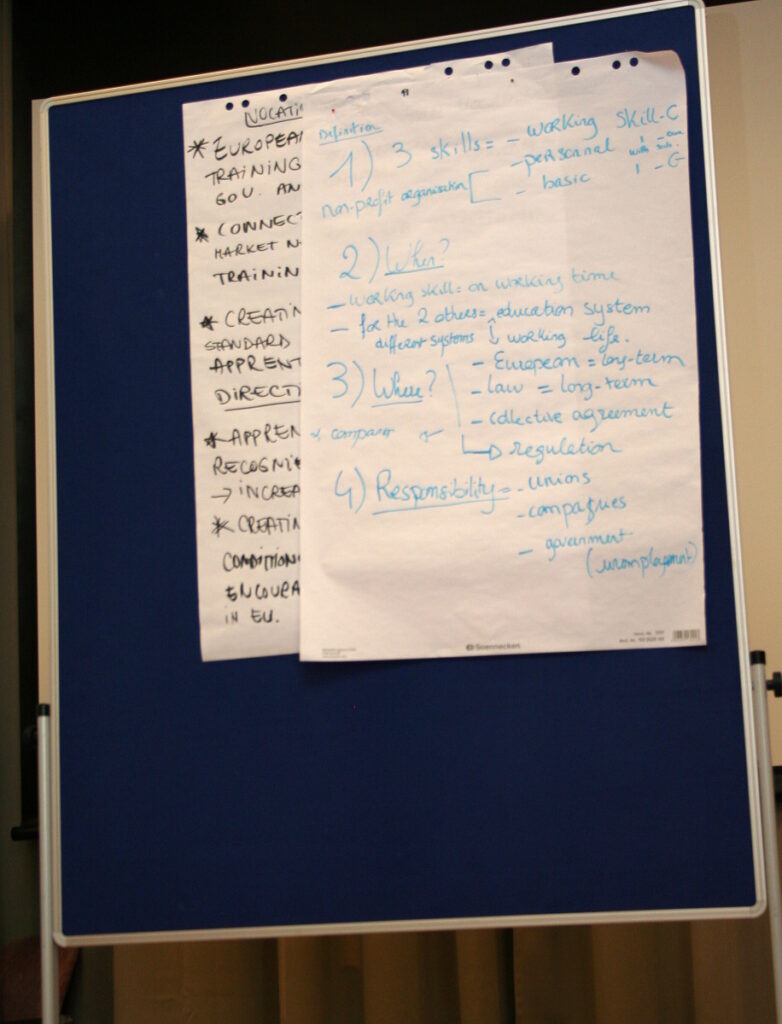 * EUROPEA
TRAINING
GOU. AN
* CONNECT
MARKET N
TRAININ
* CREATIN
STANDARD
APPRENT
DIRECTI
* APPREN
RECOGNI
→ INCREA
* CREATIN
CONDITION
ENCOURA
IN EU.
Definition
1) 3 skills = - working skill - C
- personnal
- basic
- G
non-profit organisation
2) When?
- working skill = on working time
- for the 2 others = education system
different systems working life.
3) Where?
- European = long-term
- law = long-term
- collective agreement
→ regulation
4) Responsibility = - unions
- compagnies
- government
(unemployment)
Soennecken